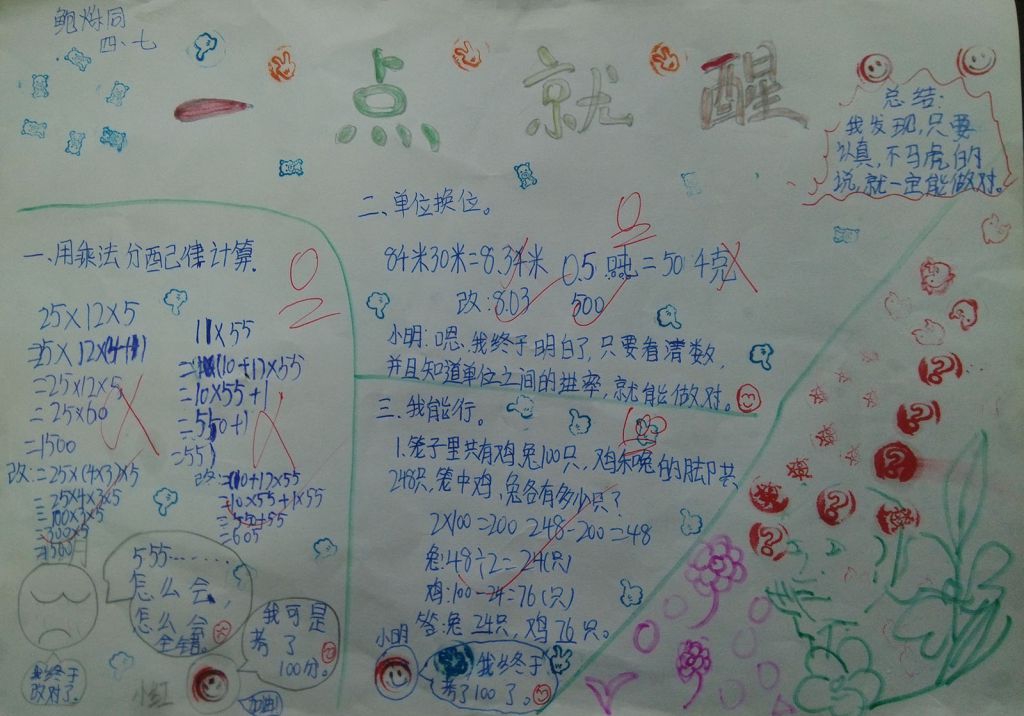 鲍烁同
四、七
一点就醒
总结:
我发现,只要
认真,不马虎的
说,就一定能做对。
一、用乘法分配律计算.
25×12×5
=25×12×5
=25×60
=1500
改:=25×(4×3)×5
=25×4×3×5
=100×3×5
=300×5
=1500
11×55
=(10+1)×55
=10×55+1
=550+1
=551
改:=(10+1)×55
=10×55+1×55
=550+55
=605
555……
怎么会,
怎么会
全错。
我终于
改对了。
小红
我可是
考了
100分。
加油!
二、单位换位。
84米30米=8.34米 0.5吨=504克
改:8.03 500
小明:嗯,我终于明白了,只要看清数,
并且知道单位之间的进率,就能做对。
三、我能行。
1.笼子里共有鸡兔100只,鸡和兔的脚共
248只,笼中鸡,兔各有多少只?
2×100=200 248-200=48
兔:48÷2=24(只)
鸡:100-24=76(只)
答:兔24只,鸡76只。
小明
我终于
考了100了。